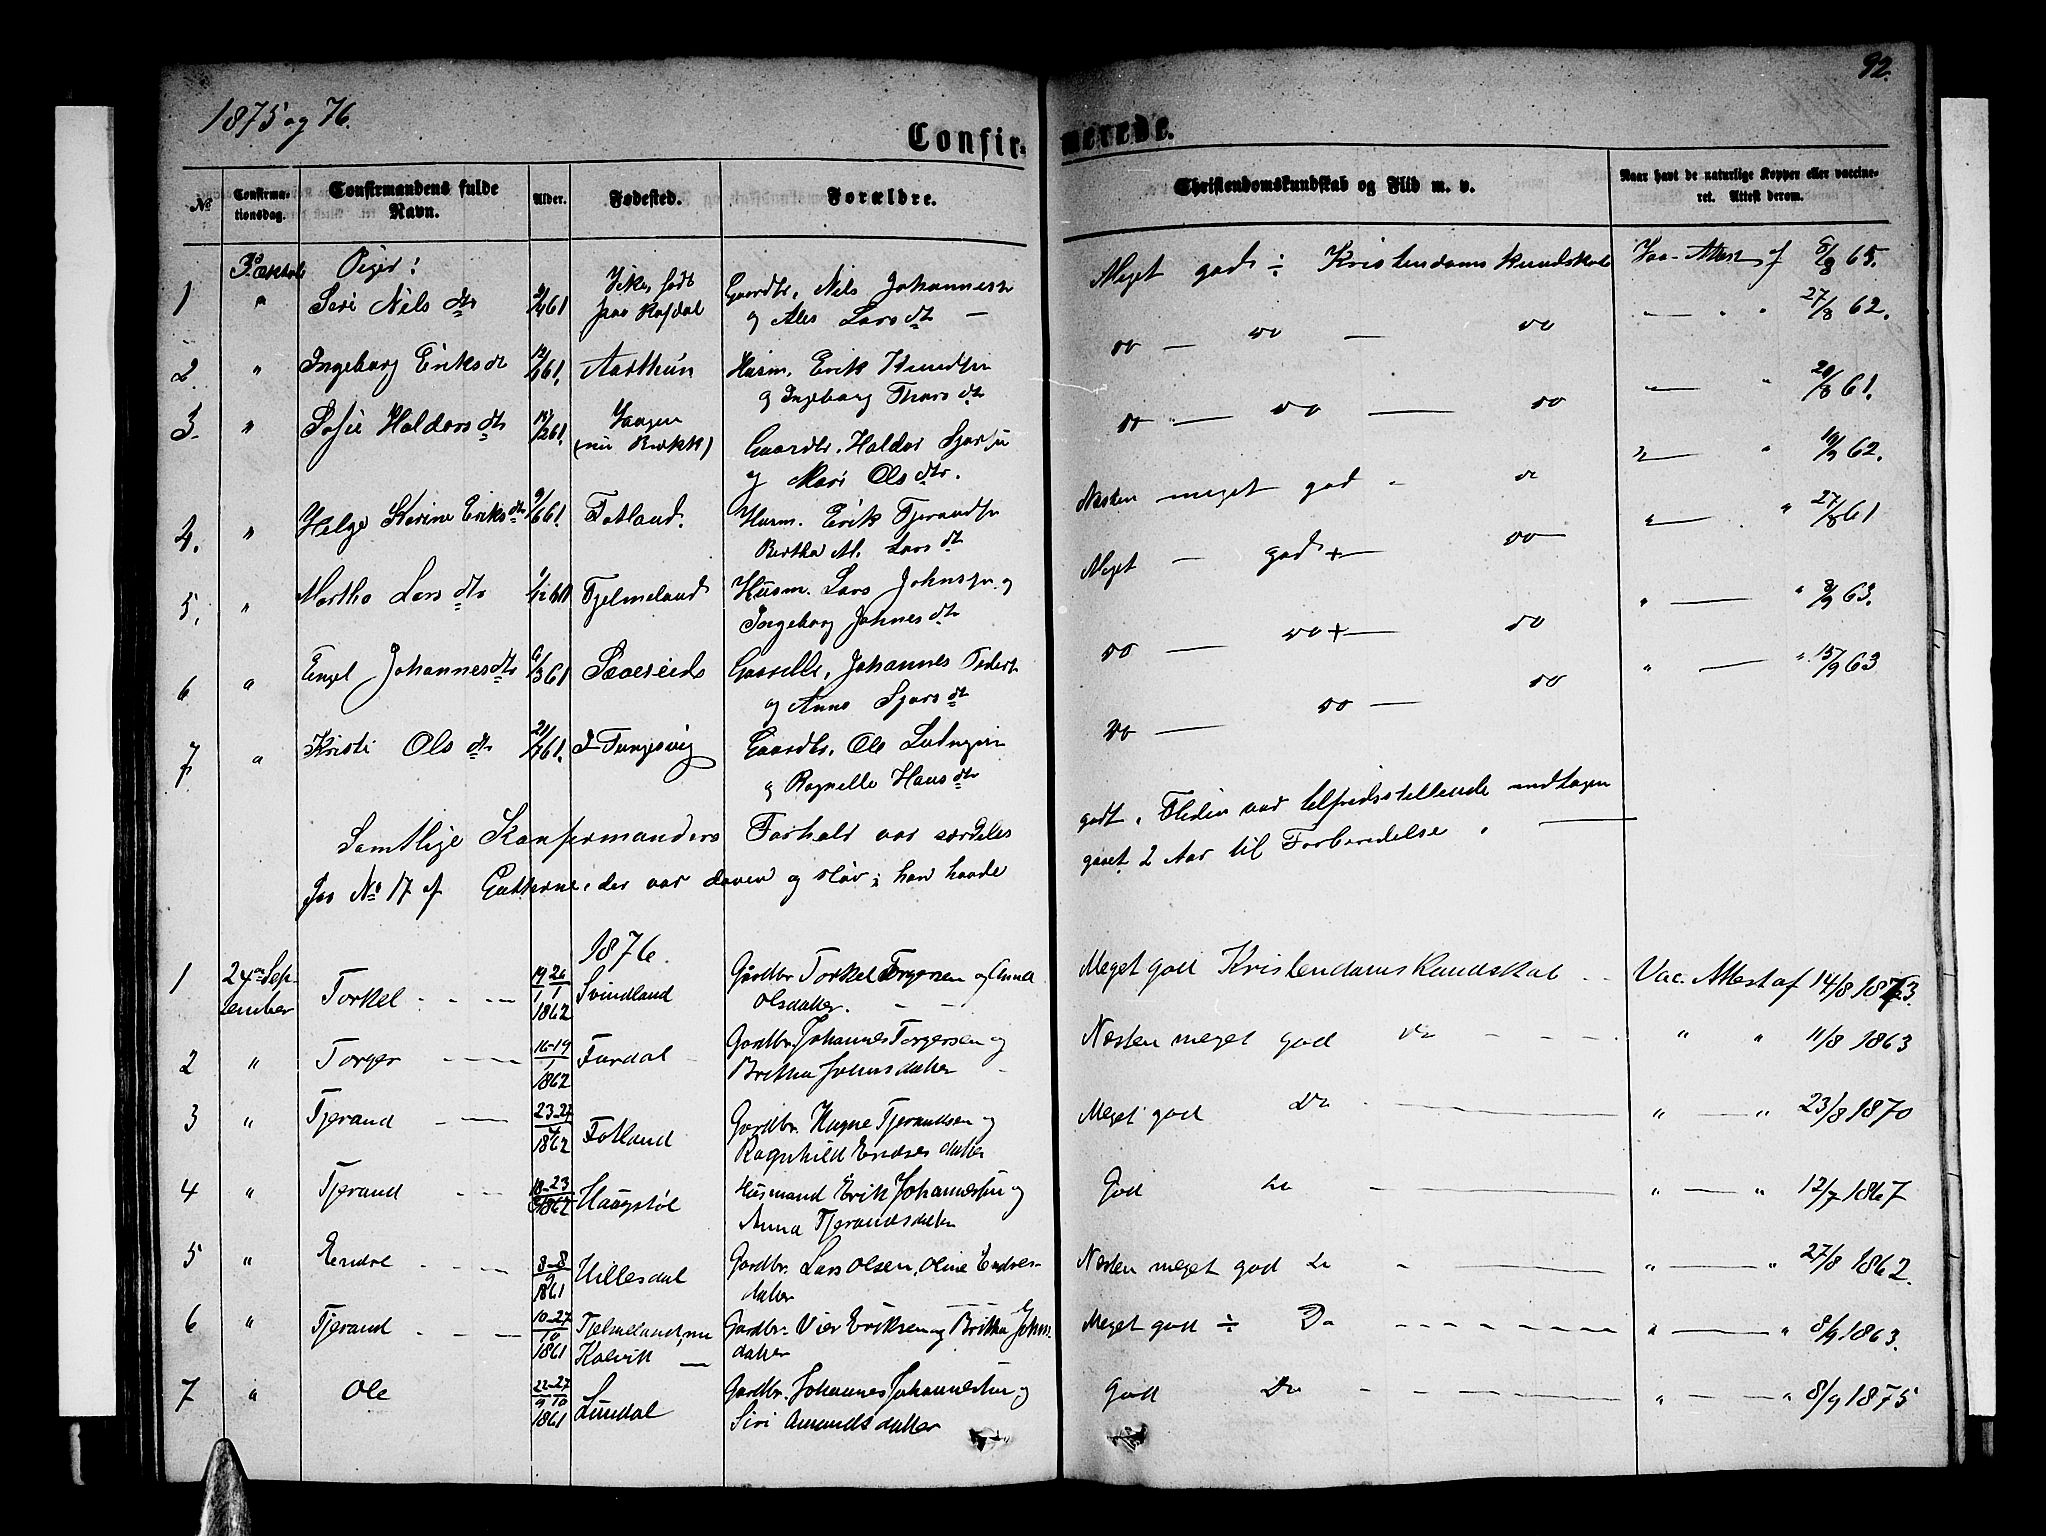 92.
1875 og 76.
Confirmerede.
No
Confirmationsdag.
Confirmandens fulde Navn.
Alder.
Fødested.
Forældre.
Christendomskundskab og Flid m. v.
Naar havt de naturlige Kopper eller vaccineret. Attest derom.
Piger:
1 " Siri Nils dtr 61 Gaardbr. Nils Johannes
og Ales Lars dtr —
Meget god ÷ Kristendoms kundskab Vac. Attest af 8/8 65.
2 " Ingeborg Eriks dtr 61. Aarthun Husm. Erik Knudsen
og Ingeborg Thors dtr
do — do — do " 27/8 62.
3 " Sofie Haldors dtr 61. Vaagen
(nu Brekke) Gaardbr. Haldor
og Mari Ols dtr.
do — do — do " 20/8 61.
4. " Helge Karine Eriks dtr 9/6 61. Fatland. Husm. Erik Tjerandsen
Bertha M. Lars dtr
Næsten meget god " do " 19/9 62.
5. " Martha Lars dtr 1/12 60 Tjelmeland Husm. Lars Johnsen og
Ingeborg Johnes dtr
Meget — god + — do — " 27/8 61
6 " Engel Johannes dtr 6/3 61 Sævereide Johannes
og Anna Sjurs dtr
do — do + — do " 8/9 63.
7 " Kristi Ols dtr 61. I-Tungesvig Gaardbr. Ole Ludvigsen
og Ragnilde Hans dtr
do — do — do " 15/9 63
Samtlige Konfirmanders Forhold var særdeles godt. Fliden var tilfredsstillende undtagen
for No 17 af Gutterne, der var doven og sløv; han havde gaaet 2 Aar til Forberedelse.
1876.
1 24de September Torkel 19-26/1 1862 Svindland Gårdbr. Torkel Torgersen og Anna
Olsdatter.
Meget god Kristendoms Kundskab Vac. Attest af 14/8 1873.
2 " Torger 16-19/1 1862 Fardal Gardbr. Johannes Torgersen og
Britha Johnsdatter
Næsten meget god Do " " 11/8 1863
3 " Tjerand 23-27/4 1862 Fatland Gardbr. Hagne Tjerandsen og
Ragnhild Endresdatter
Meget god Do " — " 23/8 1870
4 " Tjerand 18-23/3 1862 Haugstøl Husmand Erik Johannessen og
Anna Tjerandsdatter
God Do " — " 12/7 1867
5 " Endre 8-8/9 1861 Hillesdal Gardbr. Lars Olsen, Oline Endresdatter
Næsten meget god Do " — " 27/8 1862.
6 " Tjerand 10-27/10 1861 Tjelmeland, nu
Kalvik — Gardbr. Vier Eriksen og Britha Johnsdatter
Meget god ÷ Do " — " 8/9 1863.
7 " Ole 22-27/9 10 1861 Lundal Gardbr. Johannes Johannessen og
Siri Amundsdatter
God Do " — " 8/9 1875